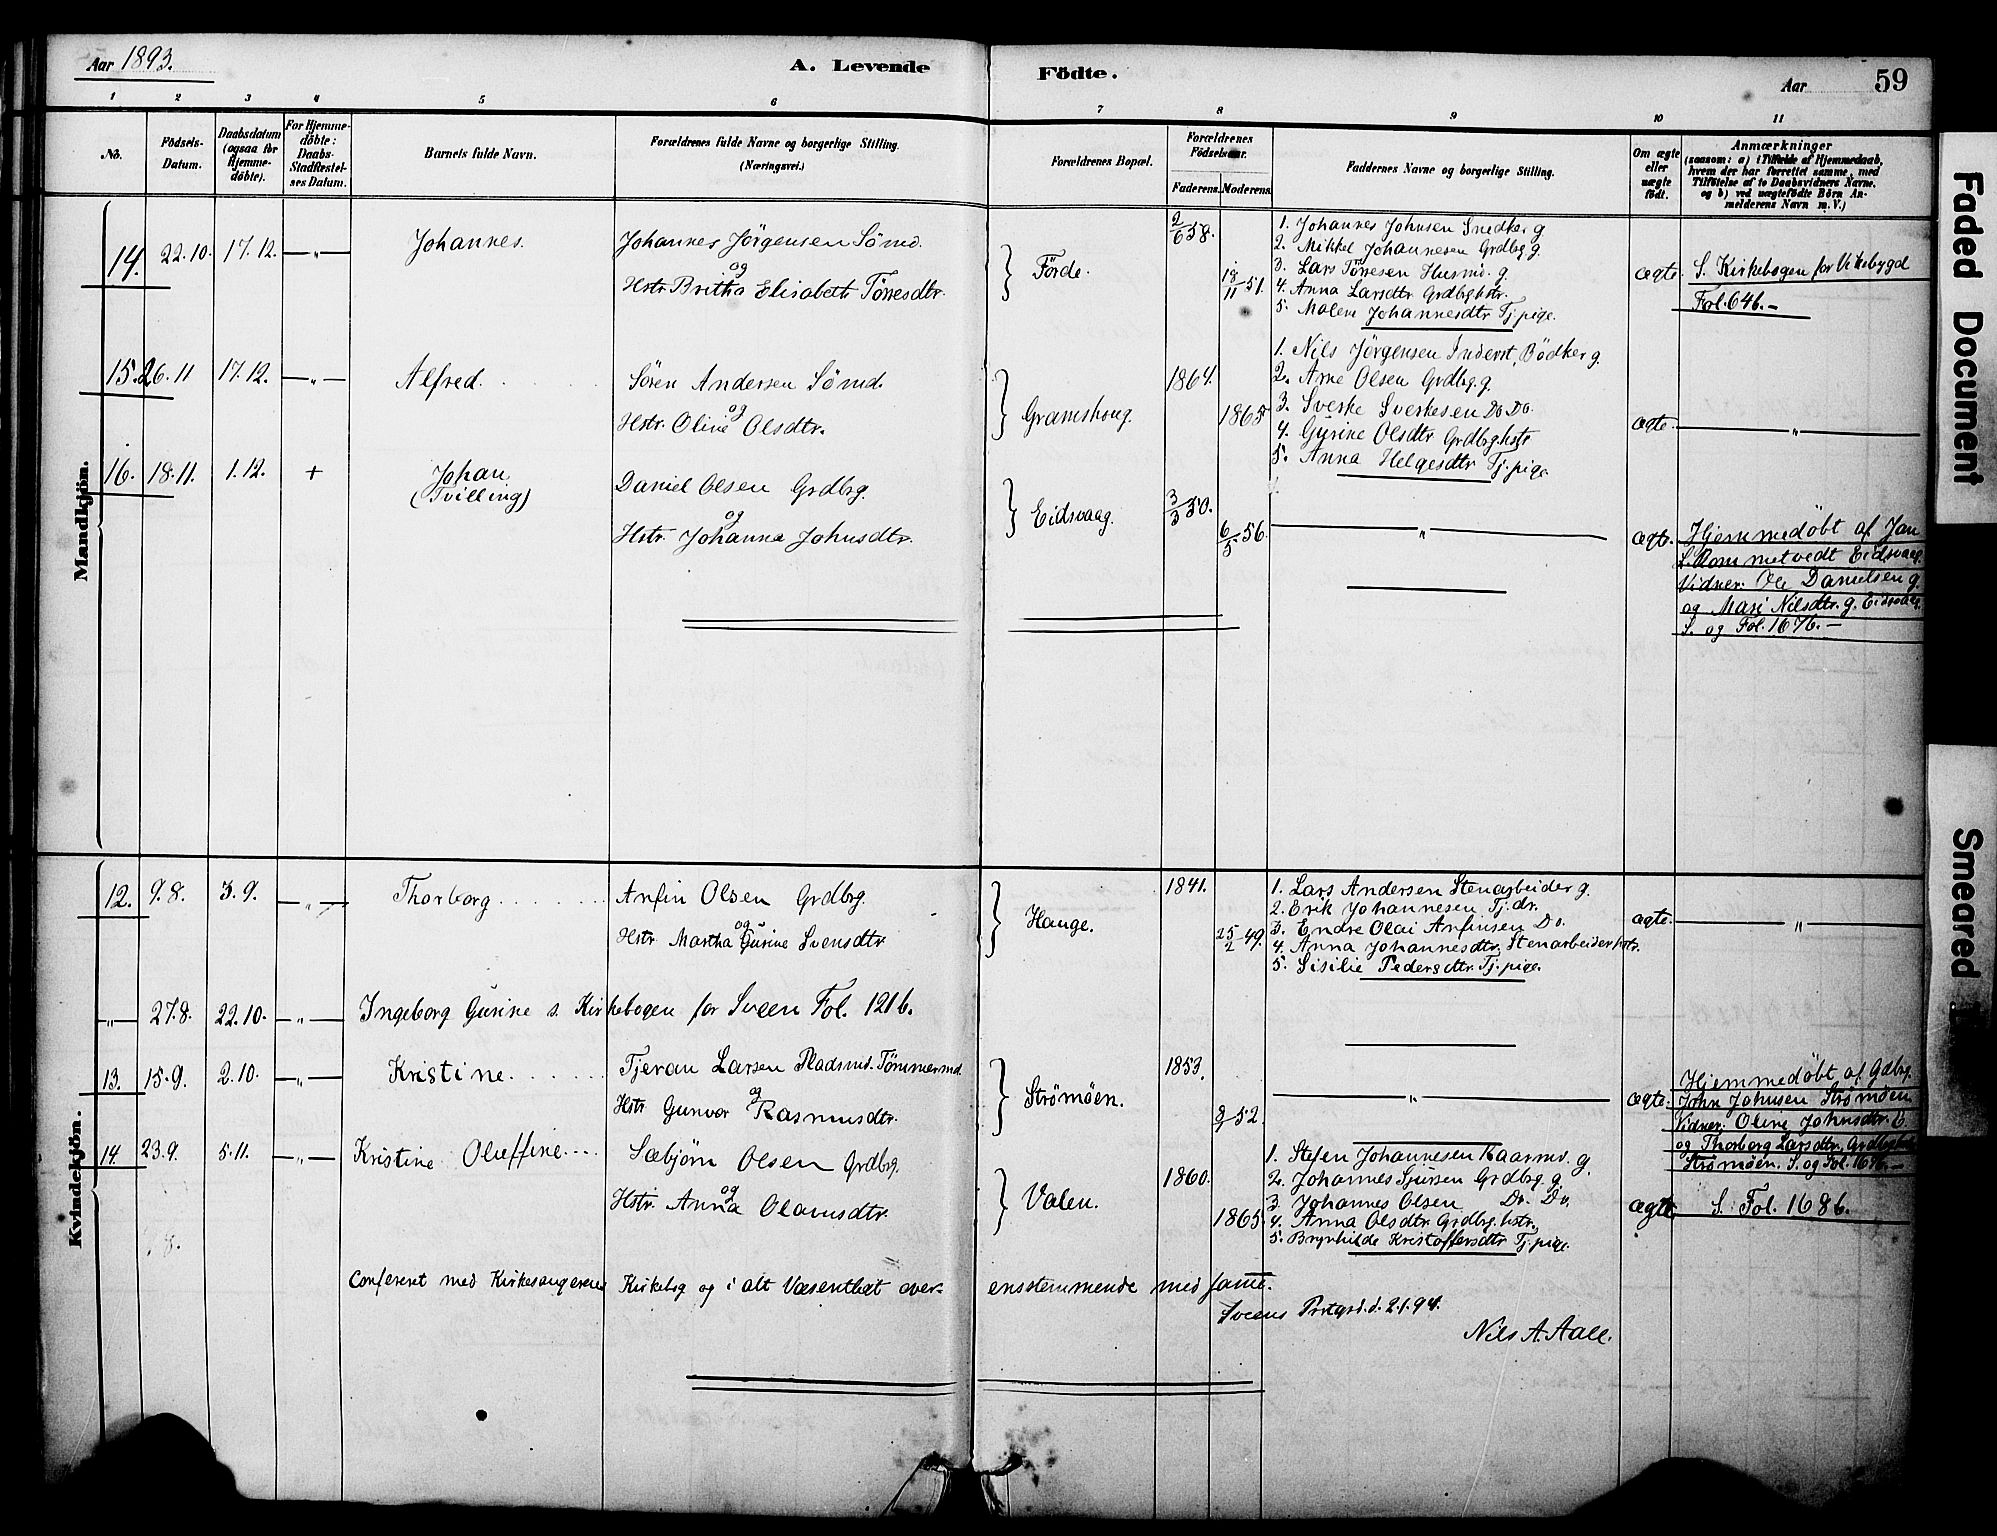 Aar 1893.
A. Levende Födte.
Aar 59
1 2 3 4 5 6 7 8 9 10 11
No.
Födsels-Datum.
Daabsdatum (ogsaa for Hjemme-döbte).
For Hjemme-döbte: Daabs-Stadfæstel-ses Datum.
Barnets fulde Navn.
Forældrenes fulde Navne og borgerlige Stilling.
(Næringsvei.)
Forældrenes Bopæl.
Forældrenes Födselsaar.
Faderens. Moderens.
Faddernes Navne og borgerlige Stilling.
Om ægte eller uægte födt.
Anmærkninger
(saasom: a) i Tilfælde af Hjemmedaab,
hvem der har forrettet samme, med
Tilföielse af to Daabsvidners Navne.
og b) ved uægtefödte Börn An-
melderens Navn m. V.)
Mandkjön.
14. 22.10. 17.12. — " — Johannes.
Johannes Jörgensen Sömd.
og
Hstr. Britha Elisabeth Törresdtr.
Förde.
2/6 58.
18/11 51.
1. Johannes Johnsen Snedker g
2. Mikkel Johannesen Grdbrg g.
3. Lars Törresen Husmd. g.
4. Anna Larsdtr Grdbrghstr.
5. Malene Johannesdtr Tj.pige.
ægte
S. Kirkebogen for Vikebygd
Fol. 64 b. —
15. 26.11 17.12. — " — Alfred.
Sören Andersen Sömd.
og
Hstr. Oline Olsdtr.
Gramshoug.
1864.
1865
1. Nils Jörgensen Inderst, Bödker g.
2. Arne Olsen Grdbrg. g.
3. Sveske Sveskesen Do Do.
4. Gurine Olsdtr Grdbrghstr
5. Anna Helgesdtr Tj. pige.
ægte. — " —
16. 18.11. 1.12. + Johan.
(Tvilling)
Daniel Olsen Grdbrg.
og
Hstr. Johanna Johnsdtr.
Eidsvaag.
3/3 50.
6/5 56.
— " —
ægte.
Hjemmedöbt af Jan
S. Rommetvedt Eidsvaag.
Vidner: Ole Danielsen g.
og Mari Nilsdtr. g. Eidsvaag.
S. og Fol. 167 b. —
Kvindekjön.
12. 9.8. 3.9. — " — Thorborg
Anfin Olsen Grdbrg.
og
Hstr Martha Gurine Svensdtr
Hauge.
1841.
25/2 49.
1. Lars Andersen Stenarbeider g.
2. Erik Johannesen Tj. dr.
3. Endre Olai Anfinsen Do.
4. Anna Johannesdtr. Stenarbeiderhstr.
5. Sisilie Pedersdtr. Tj. pige.
ægte. — " —
— " — 27.8. 22.10. — " — Ingeborg Gurine s. Kirkebogen for Sveen Fol. 121 b.
13. 15.9. 2.10. — " — Kristine.
Tjeran Larsen Pladsmd. Tömmermd.
og
Hstr Gunvor Rasmusdtr.
Strömöen.
1853.
52.
— " —
ægte.
Hjemmedöbt af Gdbrg.
John Johnsen Strömöen
Vidner: Oline Johnsdtr.
og Thorborg Larsdtr. Grdbrghstr
Strömöen. S. og Fol. —
14. 23.9. 5.11. — " — Kristine Oluffine
Sæbjörn Olsen Grdbrg.
og
Hstr. Anna Olamsdtr.
Valen.
1860.
1865.
1. Stefen Johannesen Kaarmd. g.
2. Johannes Sjursen Grdbrg. g.
3. Johannes Olsen Do. Do.
4. Anna Olsdtr. Grdbrg.hstr.
5. Brynhilde Kristoffersdtr Tj. pige.
ægte
S. Fol. 168 b.
Confereret med Kirkesangerens Kirkebog og i alt Væsentligt over-ensstemmende med samme.
Sveens Prstgrd. d. 2.1.94.
Nils A. Aall.
Faded Document
Smeared